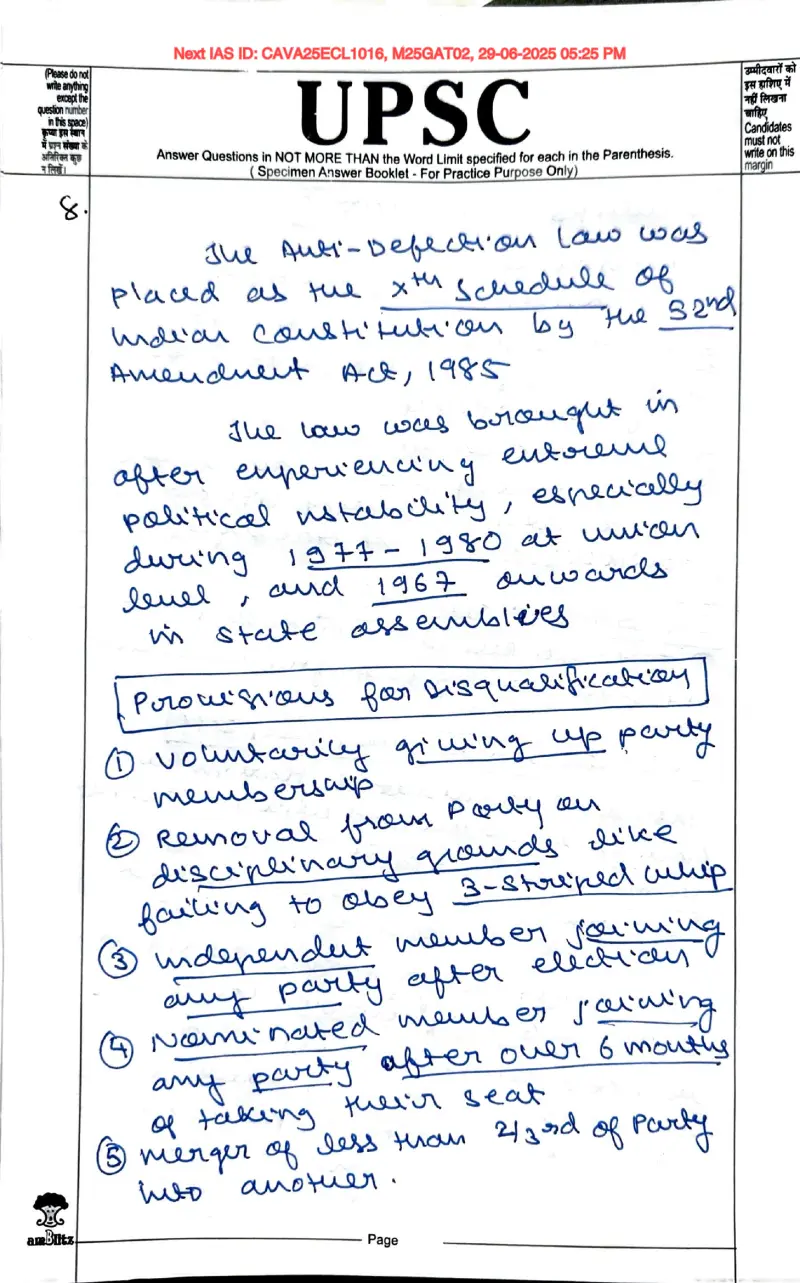 Next IAS ID: CAVA25ECL1016, M25GAT02, 29-06-2025 05:25 PM
(Please do not
write anything
except the
question number
in this space)
कृपया इस स्थान
में प्रश्न संख्या के
अतिरिक्त कुछ
न लिखें।
UPSC
Answer Questions in NOT MORE THAN the Word Limit specified for each in the Parenthesis.
( Specimen Answer Booklet - For Practice Purpose Only)
उम्मीदवारों को
इस हाशिए में
नहीं लिखना
चाहिए
Candidates
must not
write on this
margin
8.
The Anti-Defection Law was
placed as the Xth Schedule of
Indian Constitution by the 52nd
Amendment Act, 1985
The law was brought in
after experiencing extreme
political instability, especially
during 1977-1980 at union
level, and 1967 onwards
in state assemblies
Provisions for Disqualification
① Voluntarily giving up party
membership
② Removal from party on
disciplinary grounds like
failing to obey 3-striped whip
③ Independent member joining
any party after election
④ Nominated member joining
any party after over 6 months
of taking their seat
⑤ Merger of less than 2/3rd of party
into another.
amBlitz
Page